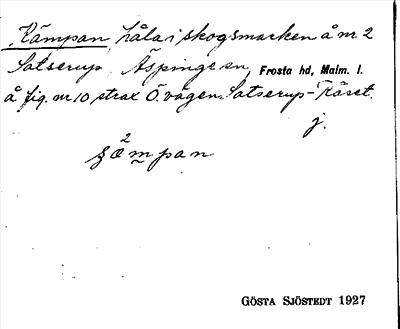 Kämpan, håla i skogsmarken å nr 2
Satserup, Äspinge sn, Frosta hd, Malm. l.
å fig. nr 10 strax Ö. vägen Satserup-Råset.
j.
2
pan
GÖSTA SJÖSTEDT 1927